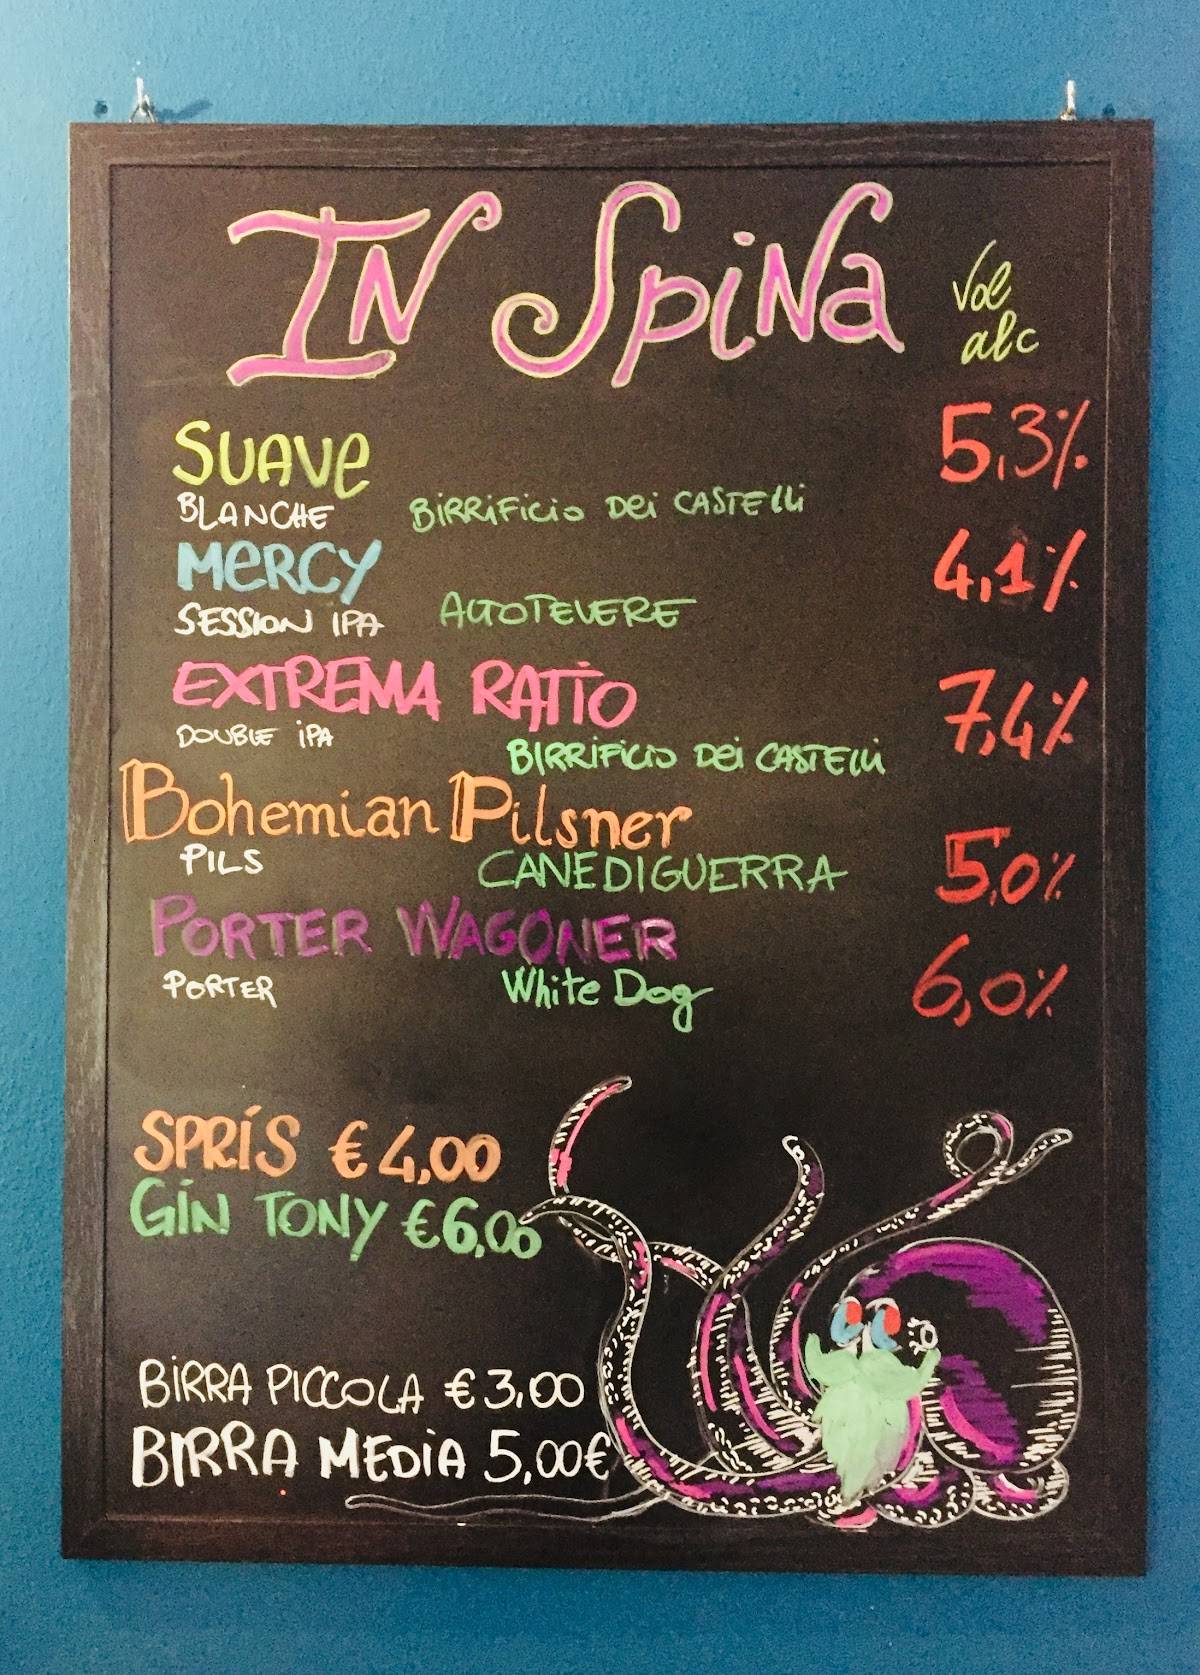 IN SpiNa
Vol
alc
SUAVe 5,3%
BLANCHE BiRRiFiCiO Dei CASTELLi
MeRCY 4,1%
SESSION IPA ALTOTEVERE
EXTREMA RATIO 7,4%
DOUBLE iPA BIRRIFICIO Dei CASTELLI
Bohemian Pilsner
PILS CANEDIGUERRA 5,0%
PORTER WAGONER
PORTER White Dog 6,0%
SPRÍS €4,00
GIN TONY €6,00
BiRRA PICCOLA €3,00
BIRRA MEDIA 5,00€